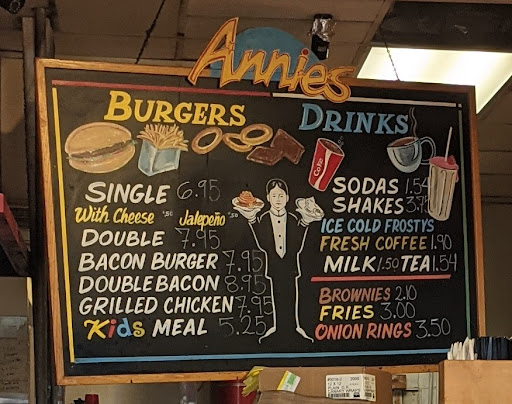 Annies
BURGERS
DRINKS
Coke
SINGLE 6.95
With Cheese .50 Jalapeño .50
DOUBLE 7.95
BACON BURGER 7.95
DOUBLE BACON 8.95
GRILLED CHICKEN 7.95
Kids MEAL 5.25
SODAS 1.54
SHAKES
ICE COLD FROSTYS
FRESH COFFEE 1.90
MILK 1.50 TEA 1.54
BROWNIES 2.10
FRIES 3.00
ONION RINGS 3.50